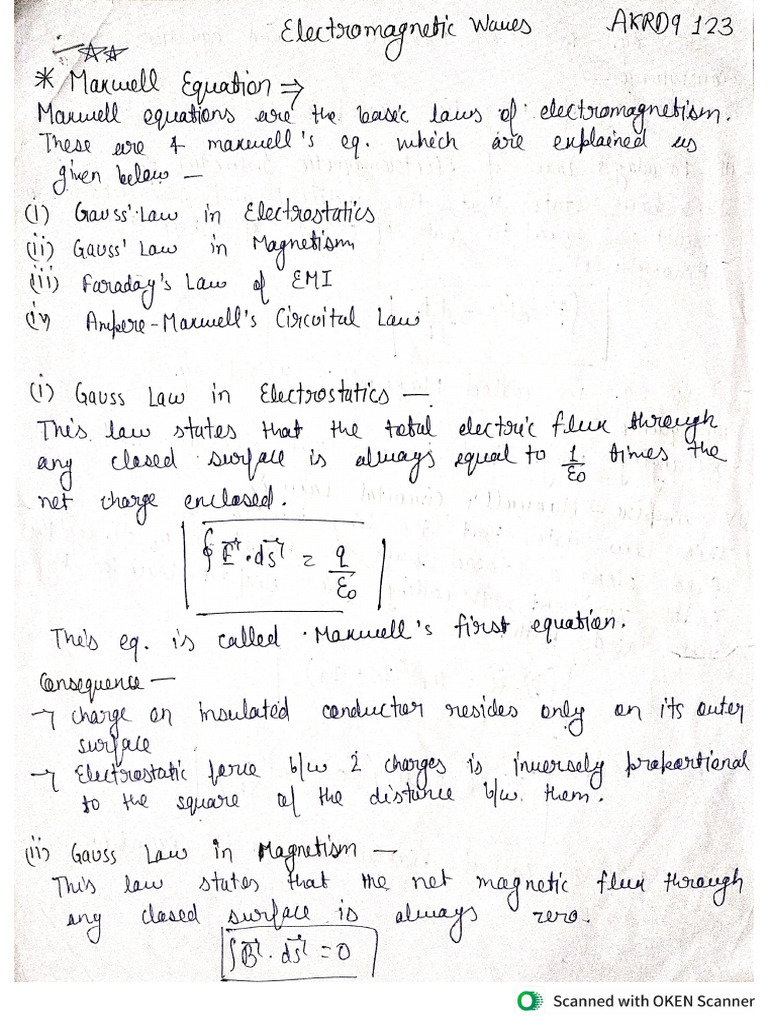 Electromagnetic Waves AKRD9 123
* Maxwell Equation ⇒
Maxwell equations are the basic laws of electromagnetism.
These are 4 maxwell's eq. which are explained as
given below —
(i) Gauss' Law in Electrostatics
(ii) Gauss' Law in Magnetism
(iii) Faraday's Law of EMI
(iv) Ampere-Maxwell's Circuital Law
(i) Gauss Law in Electrostatics —
This law states that the total electric flux through
any closed surface is always equal to 1/ε₀ times the
net charge enclosed.
∮ E⃗ · ds⃗ = q/ε₀
This eq. is called Maxwell's first equation.
Consequence —
→ charge on insulated conductor resides only on its outer
surface
→ Electrostatic force b/w 2 charges is inversely proportional
to the square of the distance b/w them.
(ii) Gauss Law in Magnetism —
This law states that the net magnetic flux through
any closed surface is always zero.
∫ B⃗ · ds⃗ = 0
Scanned with OKEN Scanner